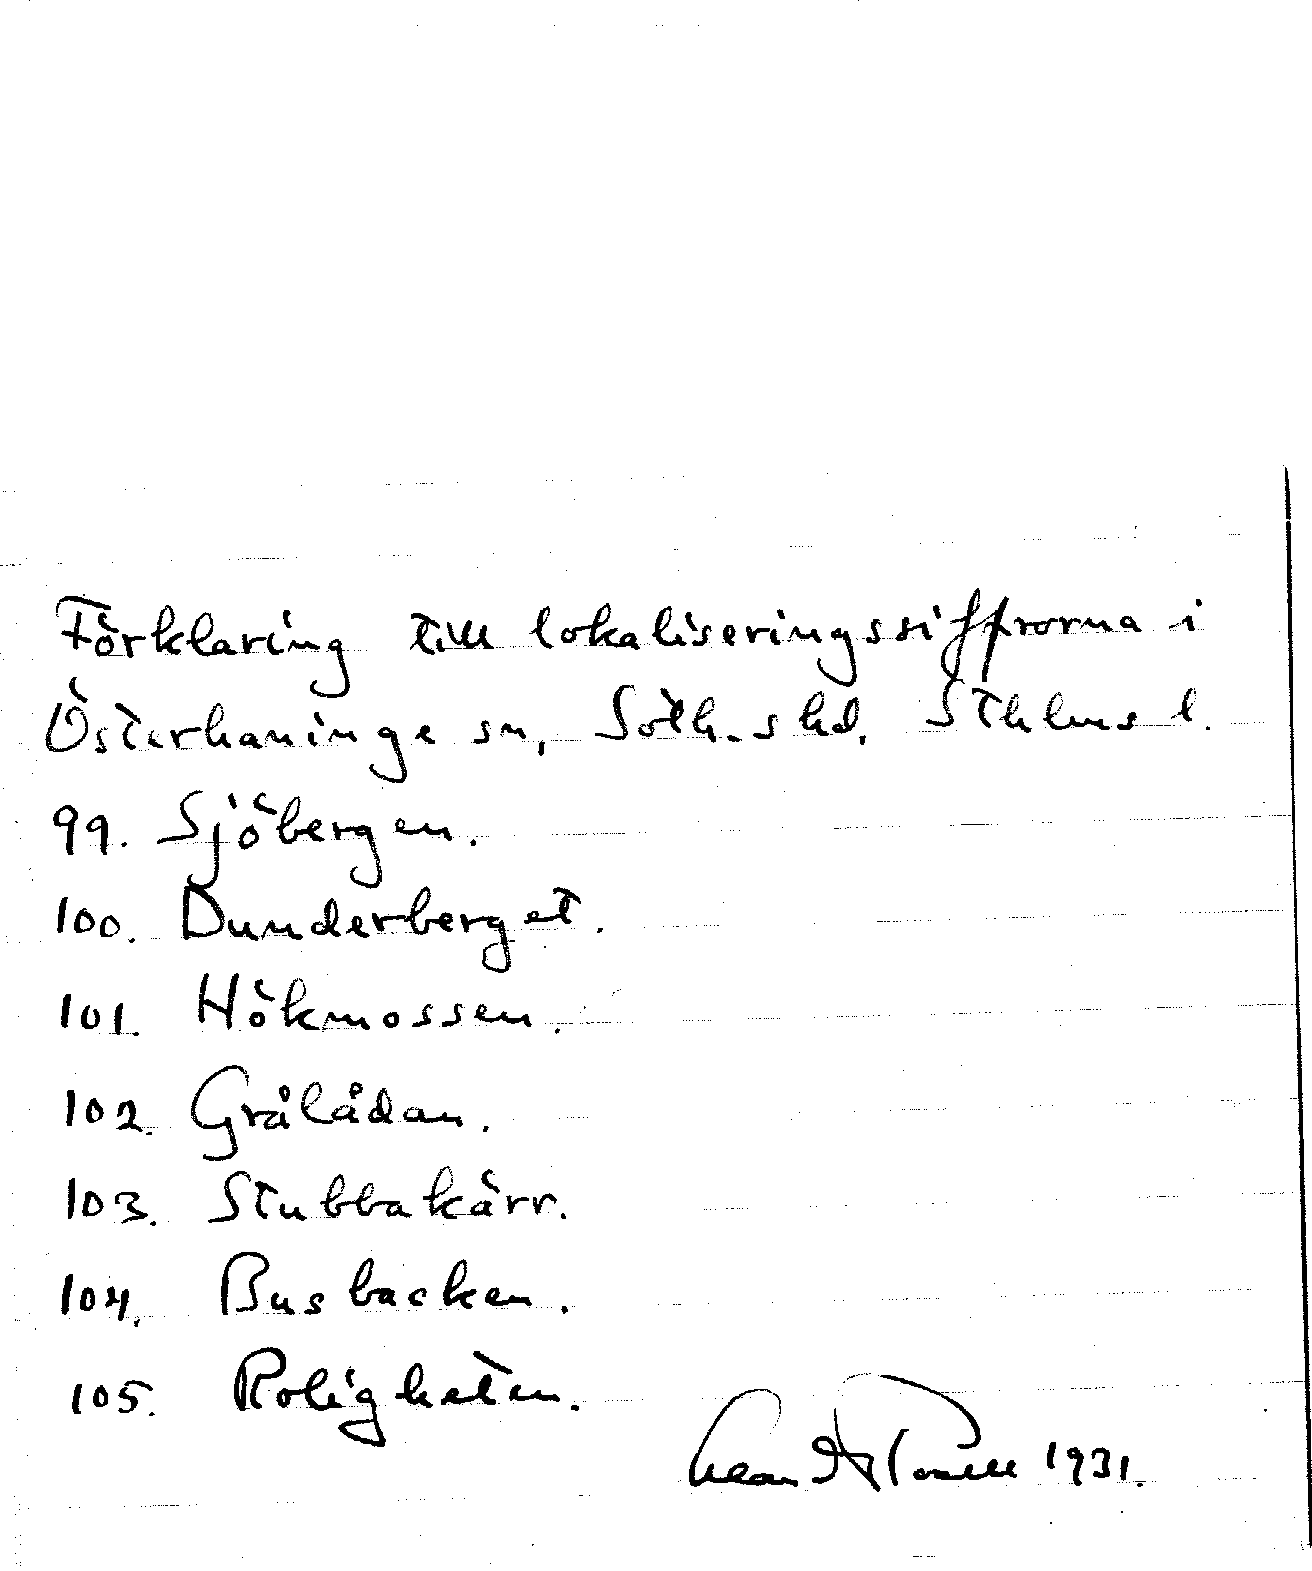 Förklaring till lokaliseringssiffrorna i
Österhaninge sn, Soth.s hd. Sthlms l.
99. Sjöbergen.
100. Dunderberget.
101. Hökmossen.
102. Grålådan.
103. Stubbakärr.
104. Busbacken.
105. Roligheten.
1931.